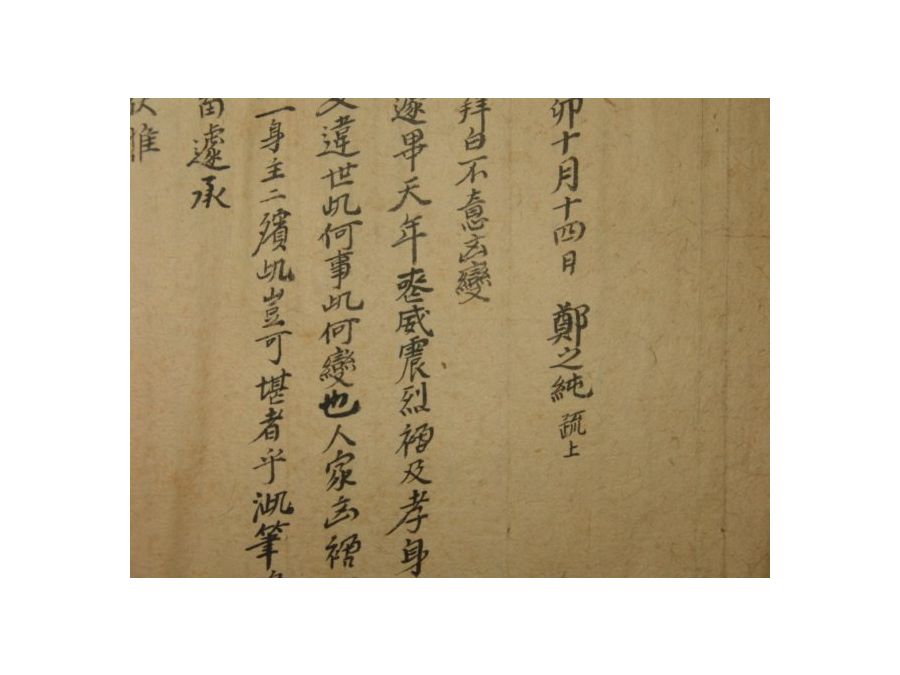 卯十月十四日 鄭之純 疏上
拜白不意凶變
遽畢天年 威震烈禍及孝身
又違世此何事此何變也人家凶禍
一身主二殯此豈可堪者乎泚筆
遽承
惟